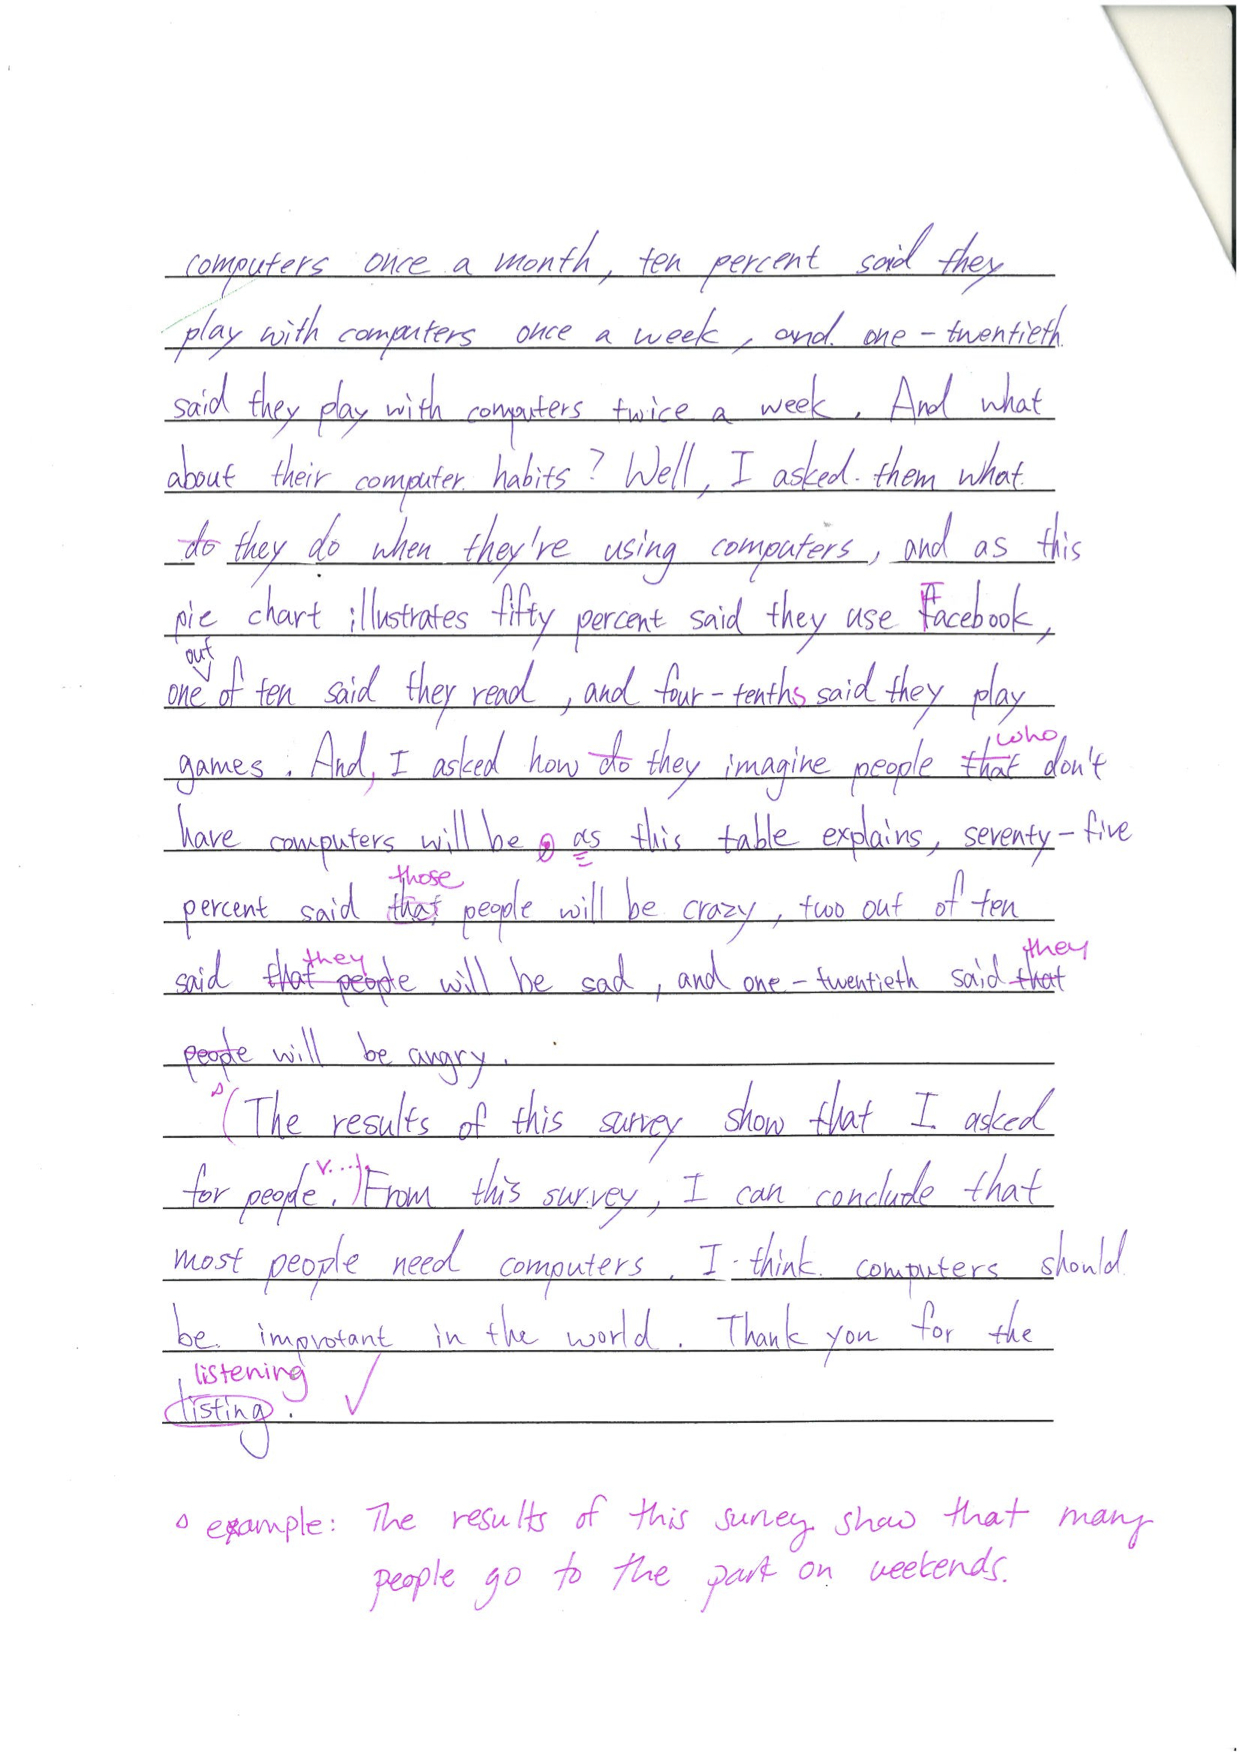 computers once a month, ten percent said they
play with computers once a week, and one-twentieth
said they play with computers twice a week. And what
about their computer habits? Well, I asked them what
do they do when they're using computers, and as this
pie chart illustrates fifty percent said they use Facebook,
out
one of ten said they read, and four-tenths said they play
who
games. And, I asked how do they imagine people that don't
have computers will be as this table explains, seventy-five
those
percent said that people will be crazy, two out of ten
they they
said that people will be sad, and one-twentieth said that
people will be angry.
(The results of this survey show that I asked
for people. V....) From this survey, I can conclude that
most people need computers. I think computers should
be improtant in the world. Thank you for the
listening
listing.
△ example: The results of this survey show that many
people go to the park on weekends.